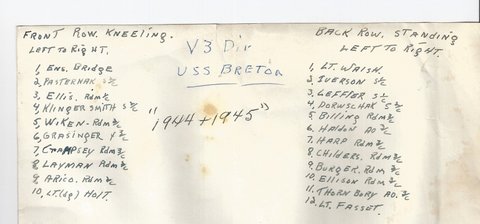 FRONT ROW. KNEELING.
LEFT TO RIGHT.
1, ENS. BRIDGE
2, PASTERNAK S 2/C
3, ELLIS. Rdm 3/C
4, KLINGER SMITH S 1/C
5, WIKEN - Rdm 3/C
6, GRASINGER Y 2/C
7, CRAMPSEY Rdm 3/C
8, LAYMAN Rdm 3/C
9, ARICO. Rdm 3/C
10, LT. (Jg) HOIT.
V3 Div
USS BRETON
"1944 + 1945"
BACK ROW. STANDING
LEFT TO RIGHT.
1, LT. WALSH.
2, IVERSON S 1/C
3, LEFFLER S 1/C
4, DORWSCHAK S 1/C
5, Billing Rdm 3/C
6, HALDON AO 3/C
7, HARP Rdm 3/C
8, CHILDERS. Rdm 3/C
9, BURGER. Rdm 3/C
10, ELLISON Rdm 3/C
11, THORN BORY AO. 2/C
12, LT. FASSET.